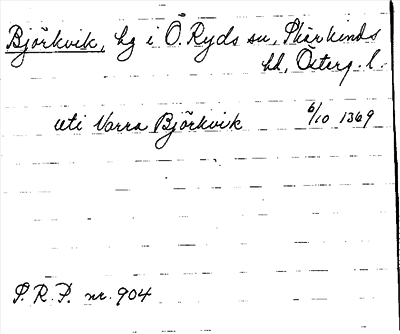 Björkvik, hg i Ö. Ryds sn, Skärkinds
hd, Österg. l.
uti Norra Björkvik 6/10 1369
S. R. P. nr. 904